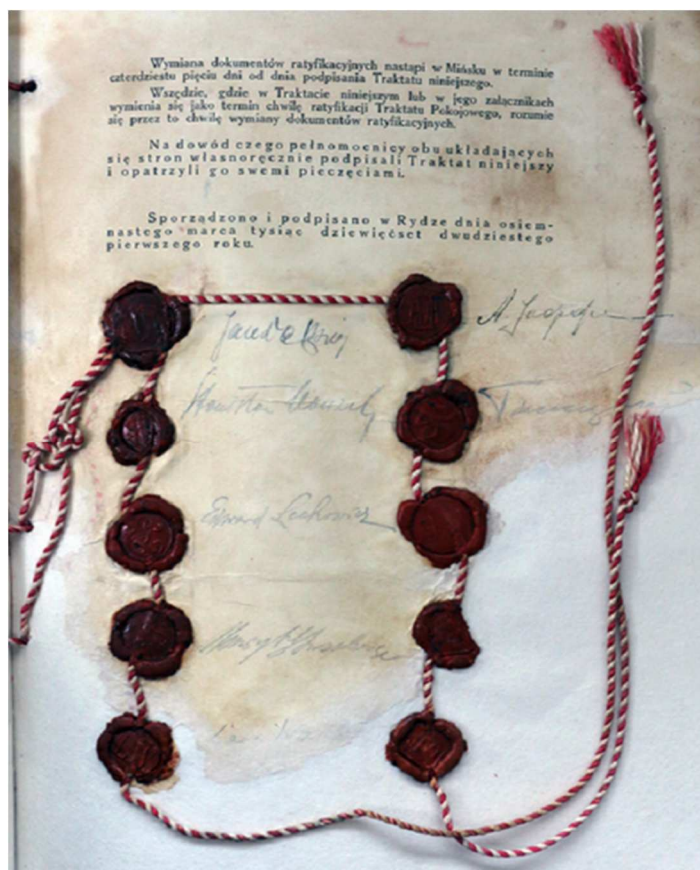 Wymiana dokumentów ratyfikacyjnych nastąpi w Mińsku w terminie
czterdziestu pięciu dni od dnia podpisania Traktatu niniejszego.
Wszędzie, gdzie w Traktacie niniejszym lub w jego załącznikach
wymienia się jako termin chwilę ratyfikacji Traktatu Pokojowego, rozumie
się przez to chwilę wymiany dokumentów ratyfikacyjnych.
Na dowód czego pełnomocnicy obu układających
się stron własnoręcznie podpisali Traktat niniejszy
i opatrzyli go swemi pieczęciami.
Sporządzono i podpisano w Rydze dnia osiem-
nastego marca tysiąc dziewięćset dwudziestego
pierwszego roku.
Edward Lechowicz